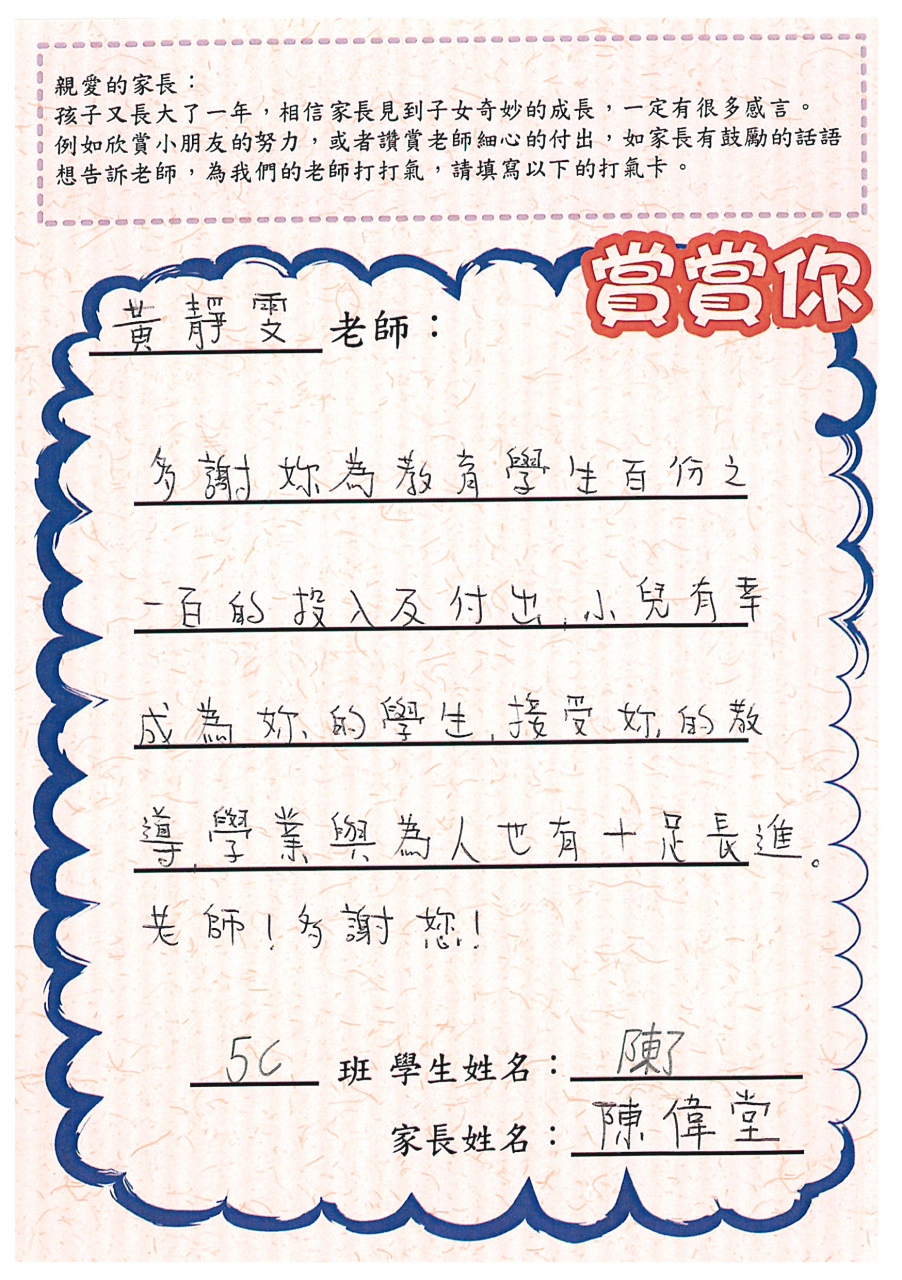 親愛的家長：
孩子又長大了一年，相信家長見到子女奇妙的成長，一定有很多感言。
例如欣賞小朋友的努力，或者讚賞老師細心的付出，如家長有鼓勵的話語
想告訴老師，為我們的老師打打氣，請填寫以下的打氣卡。
賞賞你
黃靜雯 老師：
多謝妳為教育學生百份之
一百的投入及付出,小兒有幸
成為妳的學生,接受妳的教
導,學業與為人也有十足長進。
老師！多謝您！
5C 班 學生姓名： 陳
家長姓名： 陳偉堂